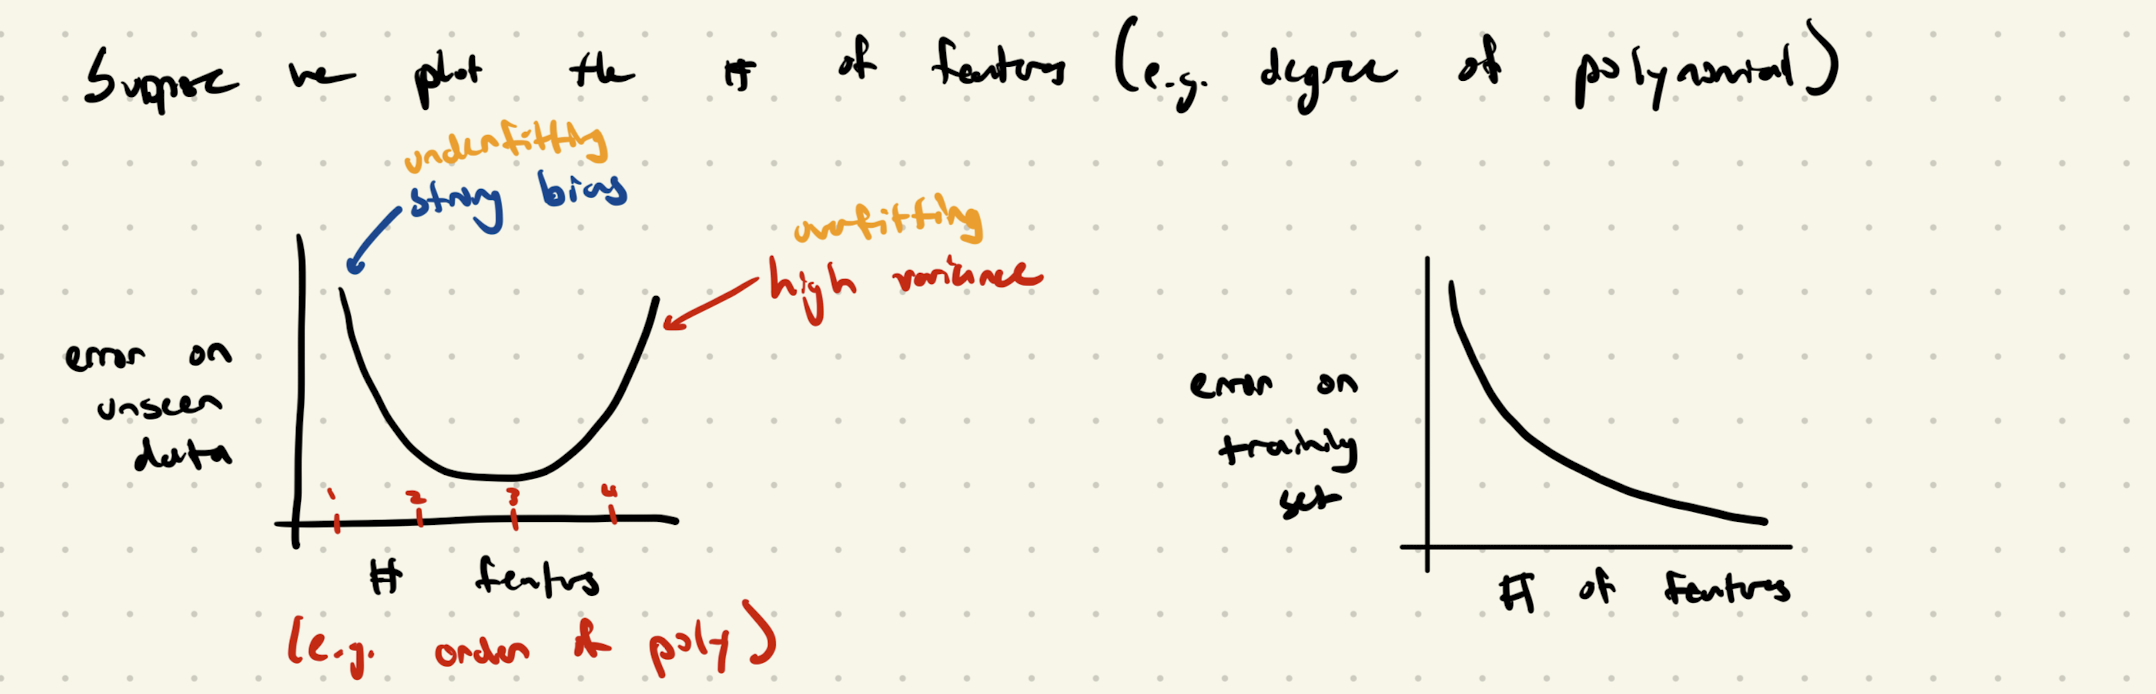 Suppose we plot the # of features (e.g. degree of polynomial)
underfitting
strong bias
overfitting
high variance
error on
unseen
data
1 2 3 4
# features
(e.g. order of poly)
error on
training
set
# of features